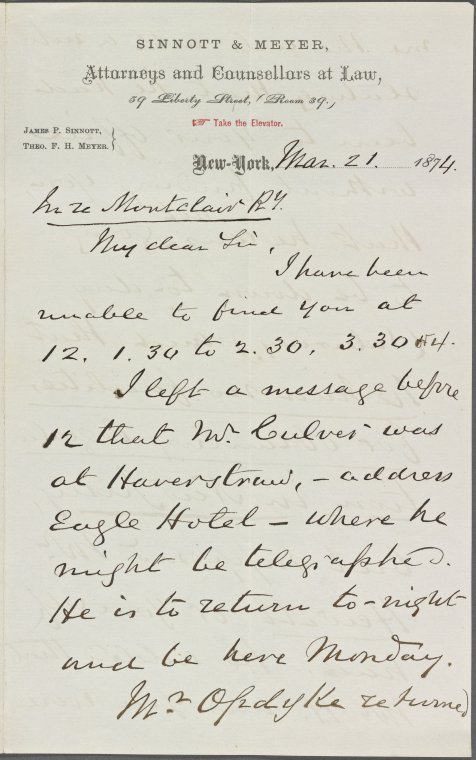 SINNOTT & MEYER,
Attorneys and Counsellors at Law,
59 Liberty Street, (Room 39.)
Take the Elevator.
JAMES P. SINNOTT,
THEO. F. H. MEYER.
New-York, Mar. 21. 1874.
In re Montclair Ry.
My dear Sir,
I have been
unable to find you at
12. 1.30 to 2.30. 3.30 & 4.
I left a message before
12 that Mr. Culver was
at Haverstraw, - address
Eagle Hotel - where he
might be telegraphed.
He is to return to-night
and be here Monday.
Mr Opdyke returned